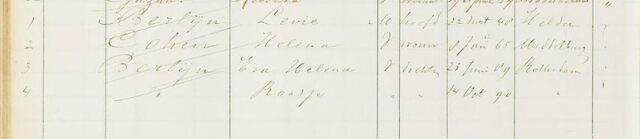 1 Berlijn Levie M hoofd 22 Oct 48 Helder
2 Cohen Helena V vrouw 8 Jan 65 Middelburg
3 Berlijn Eva Helena V dochter 23 Juni 89 Rotterdam
4 " Roosje " " 14 Oct 90 "